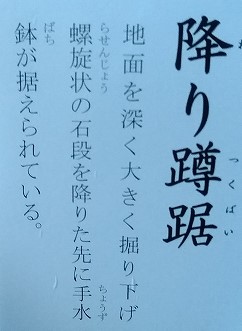 降り蹲踞
つくばい
地面を深く大きく掘り下げ
らせんじょう
螺旋状の石段を降りた先に手水
ちょうず
ばち
鉢が据えられている。